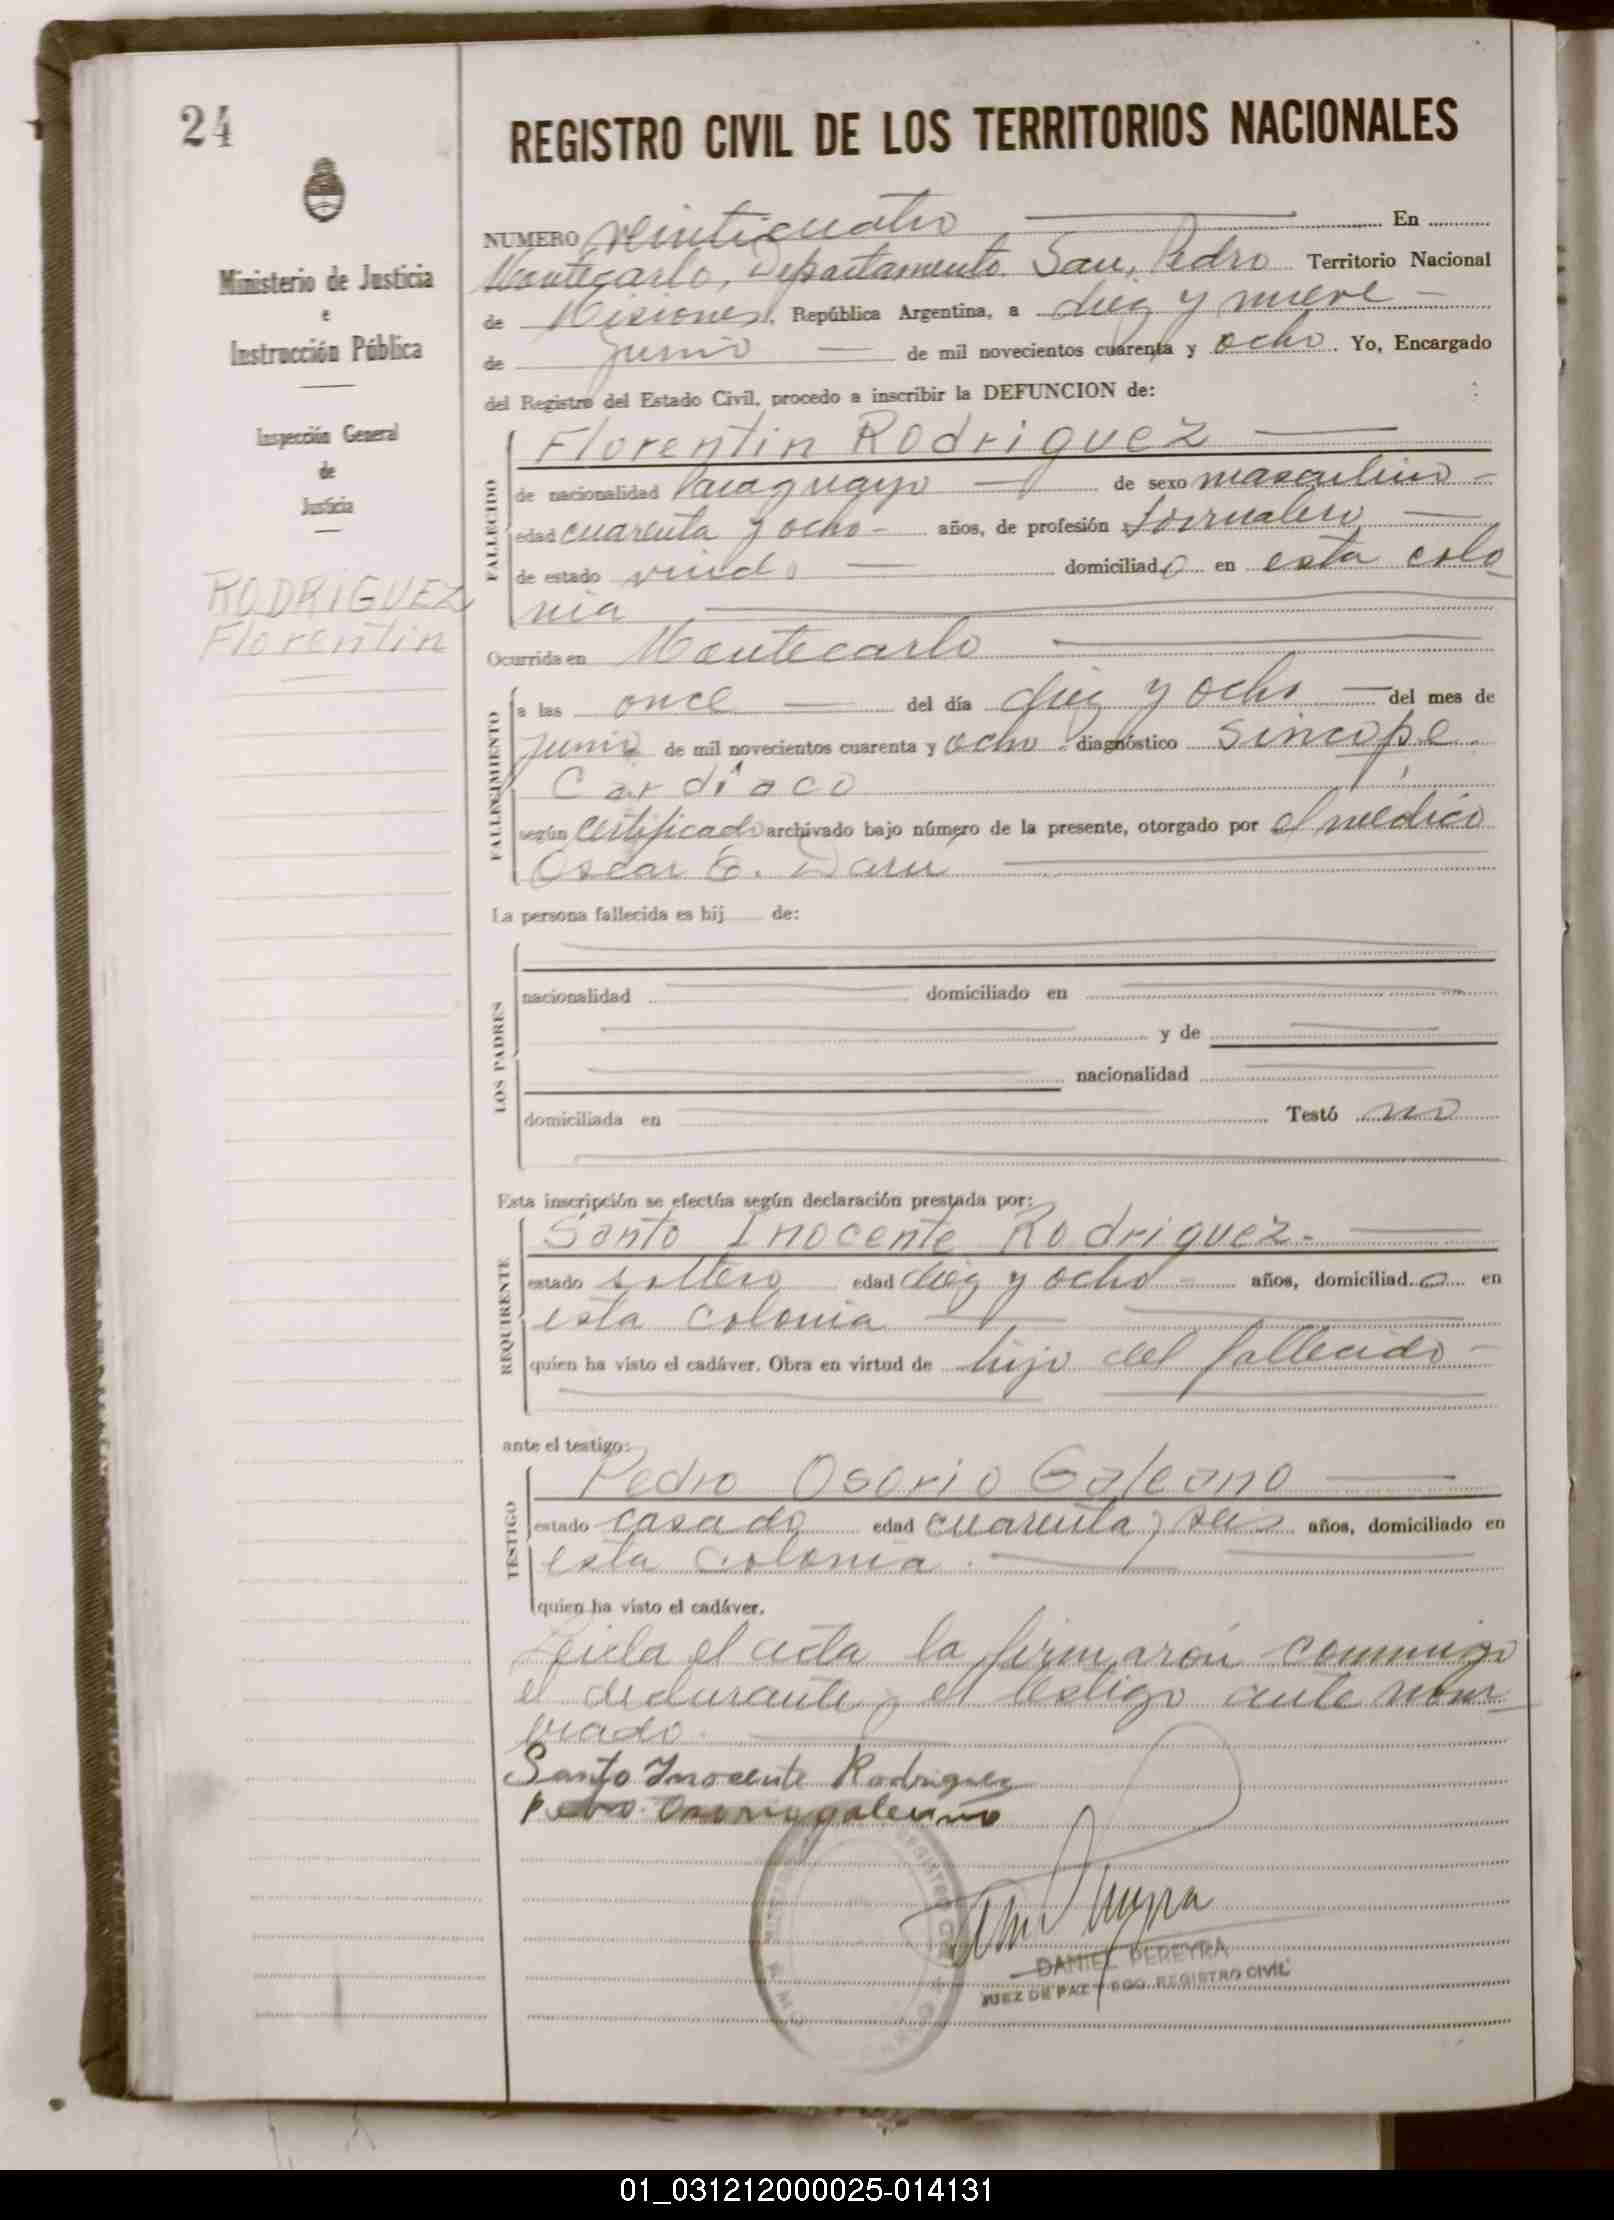 24
REGISTRO CIVIL DE LOS TERRITORIOS NACIONALES
Ministerio de Justicia
e
Instrucción Pública
Inspección General
de
Justicia
RODRIGUEZ
Florentin
NUMERO veinticuatro En
Montecarlo, Departamento San Pedro Territorio Nacional
de Misiones, República Argentina, a diez y nueve
de junio de mil novecientos cuarenta y ocho. Yo, Encargado
del Registro del Estado Civil, procedo a inscribir la DEFUNCION de:
FALLECIDO
Florentin Rodriguez
de nacionalidad Paraguayo de sexo masculino
edad cuarenta y ocho años, de profesión Jornalero
de estado viudo domiciliado en esta colo
nia
Ocurrida en Montecarlo
FALLECIMIENTO
a las once del día diez y ocho del mes de
junio de mil novecientos cuarenta y ocho diagnóstico sincope
Cardiaco
según certificado archivado bajo número de la presente, otorgado por el médico
Oscar E. Daru
La persona fallecida es hij de:
LOS PADRES
nacionalidad domiciliado en
y de
nacionalidad
domiciliada en Testó no
Esta inscripción se efectúa según declaración prestada por:
REQUIRENTE
Santo Inocente Rodriguez.
estado soltero edad diez y ocho años, domiciliado en
esta colonia
quien ha visto el cadáver. Obra en virtud de hijo del fallecido
ante el testigo:
TESTIGO
Pedro Osorio Galeano
estado casado edad cuarenta y seis años, domiciliado en
esta colonia.
quien ha visto el cadáver.
Leida el acta la firmaron conmigo
el declarante y el testigo ante nom
brado.
Santo Inocente Rodriguez
Pedro Osorio galeano
DANIEL PEREYRA
JUEZ DE PAZ Y EGO. REGISTRO CIVIL
01_031212000025-014131